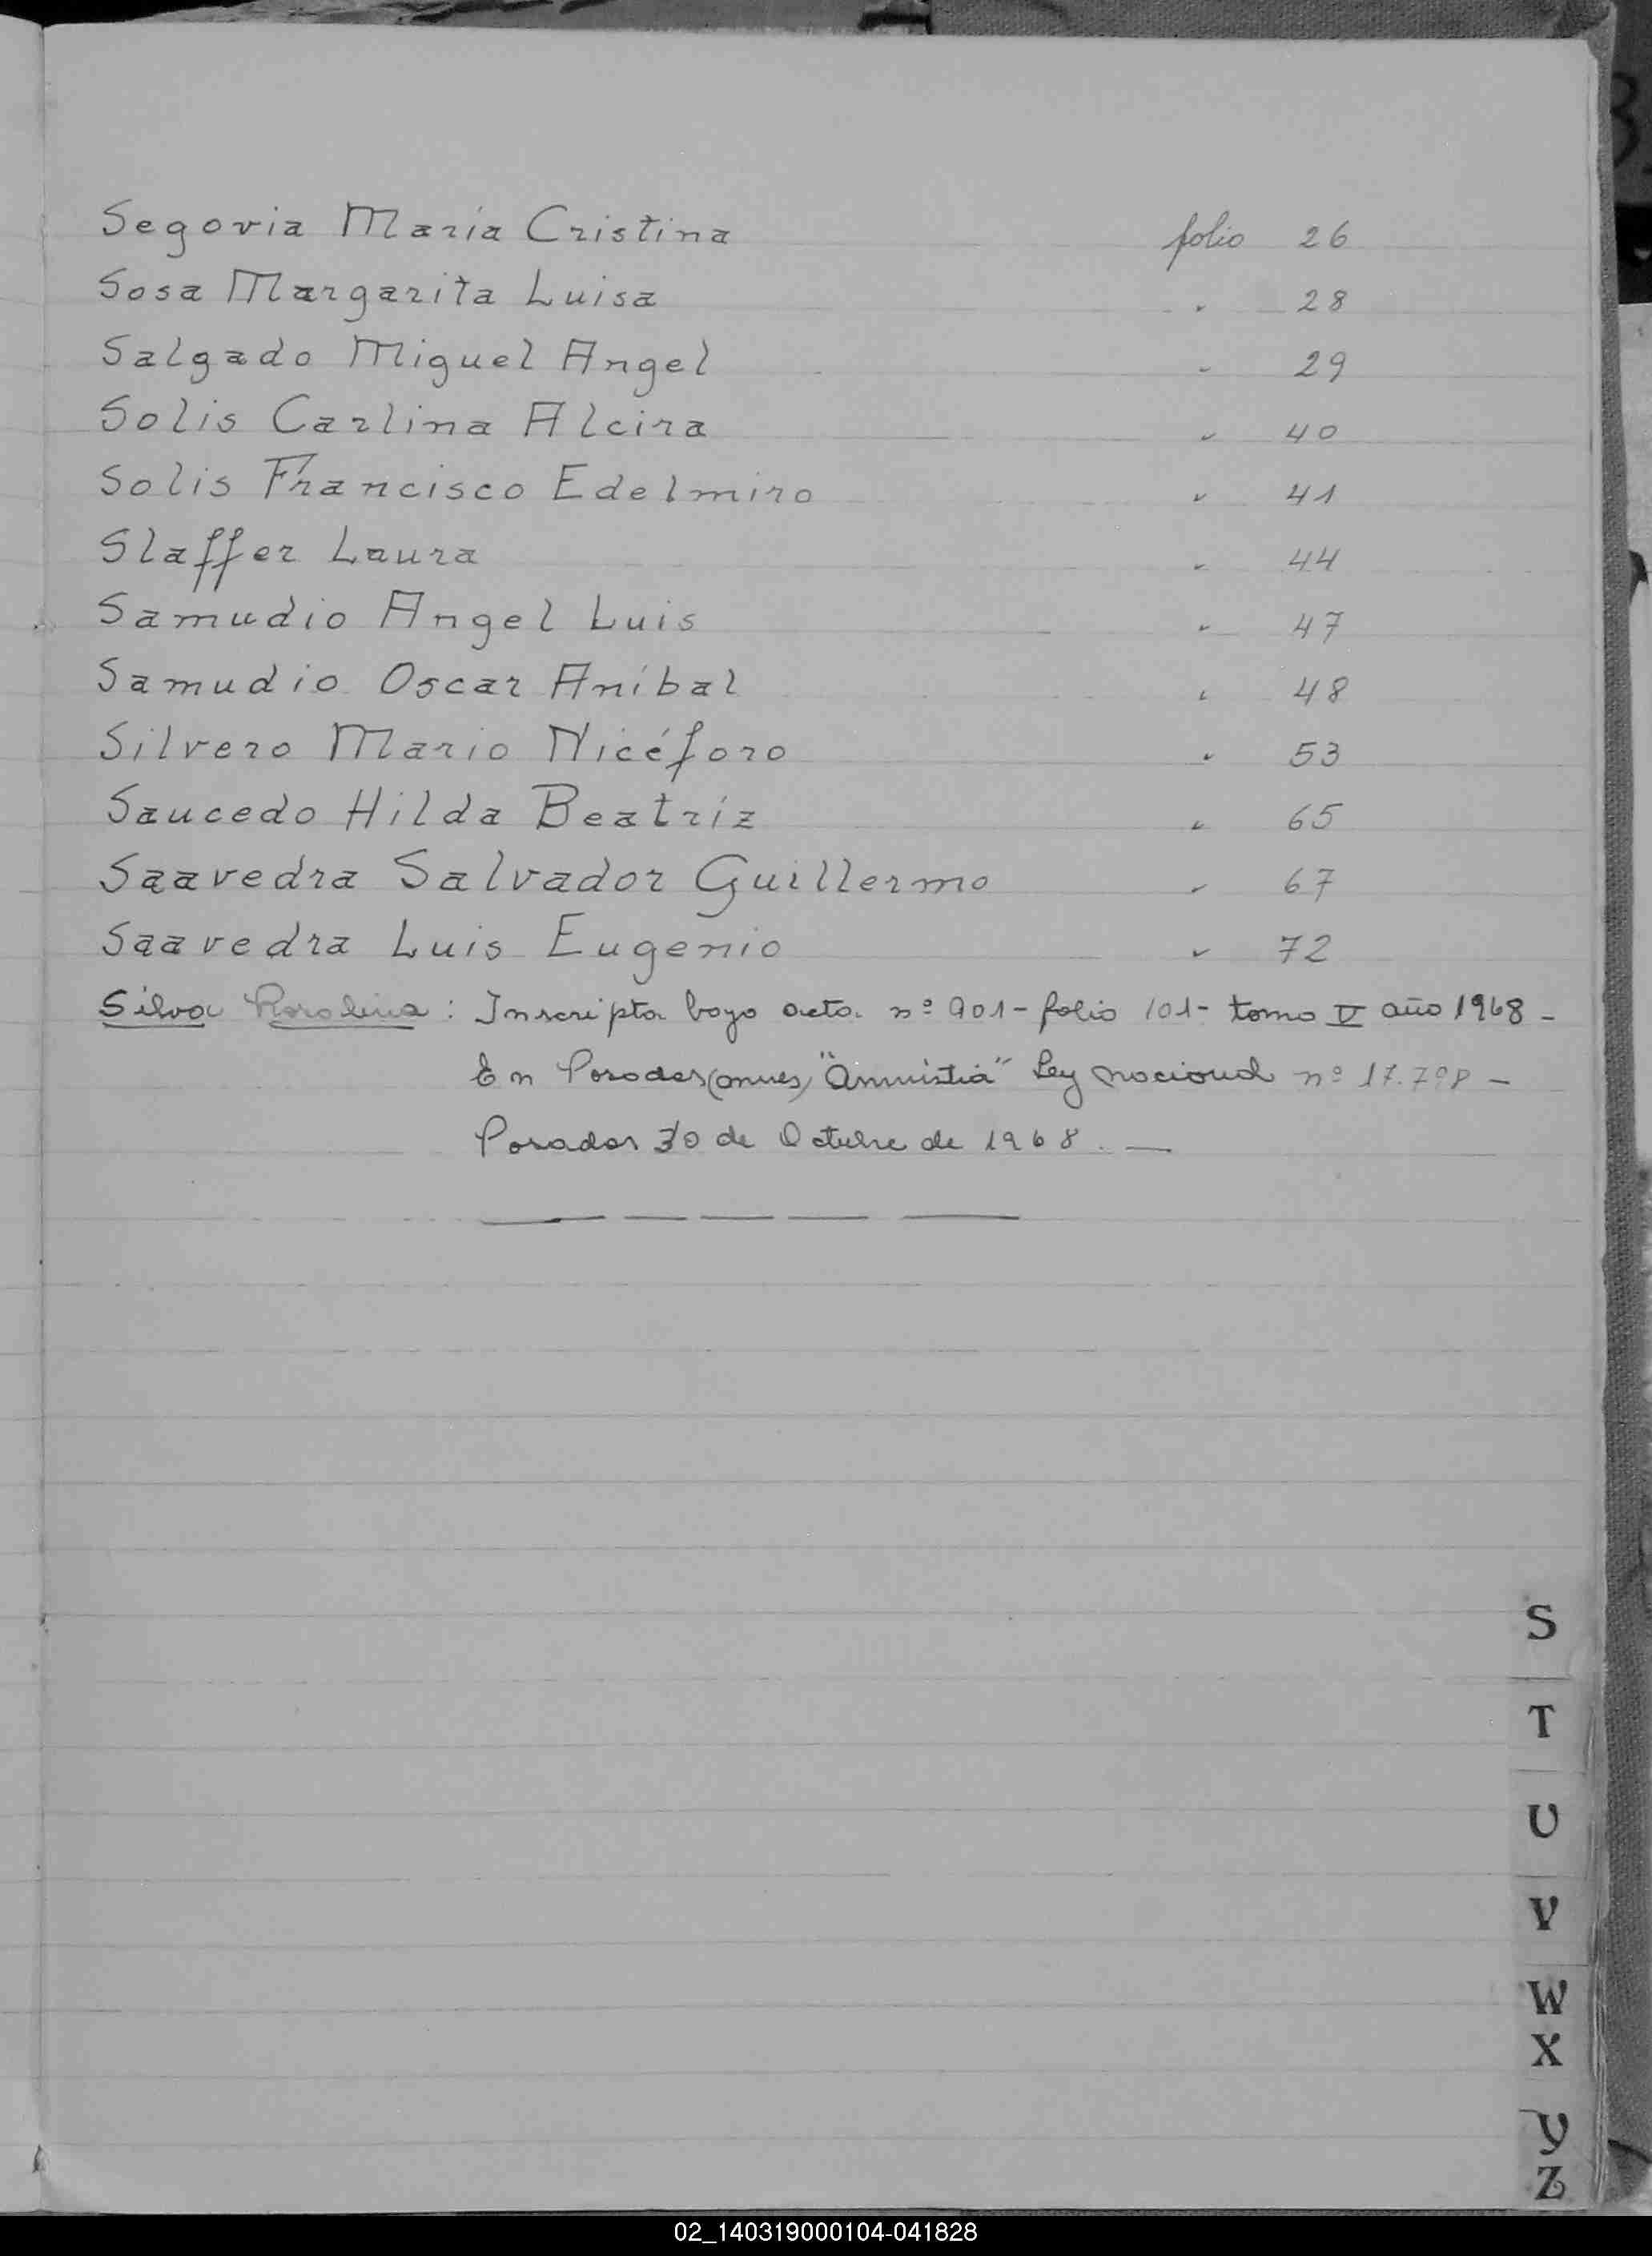 Segovia María Cristina folio 26
Sosa Margarita Luisa " 28
Salgado Miguel Angel " 29
Solis Carlina Alcira " 40
Solis Francisco Edelmiro " 41
Slaffer Laura " 44
Samudio Angel Luis " 47
Samudio Oscar Aníbal " 48
Silvero Mario Nicéforo " 53
Saucedo Hilda Beatríz " 65
Saavedra Salvador Guillermo " 67
Saavedra Luis Eugenio " 72
Silva : Inscripta bajo acta nº 901 - folio 101 - tomo V año 1968 -
En Posadas "Amnistia" Ley nacional nº 17.798 -
Posadas 30 de Octubre de 1968. —
S
T
U
V
W
X
Y
Z
02_140319000104-041828